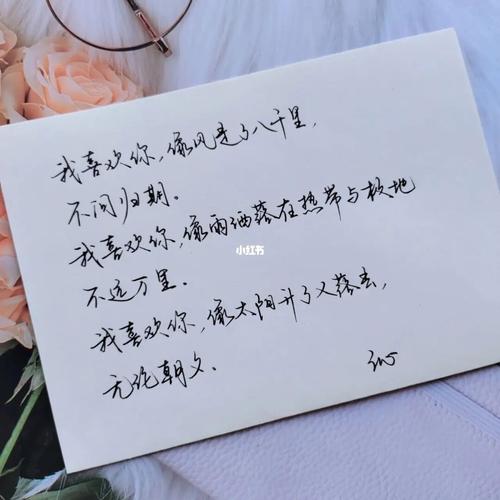 我喜欢你,像风走了八千里,
不问归期。
我喜欢你,像雨洒落在热带与极地
不远万里。
小红书
我喜欢你,像太阳升了又落去,
无论朝夕。